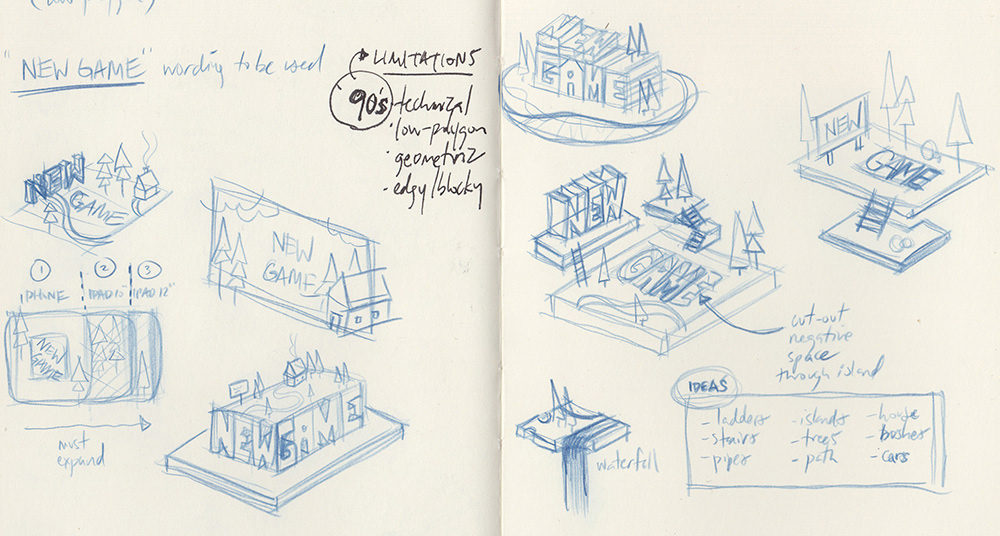 (low-polygon)
"NEW GAME" wording to be used
LIMITATIONS
90's
- technical
- low-polygon
- geometric
- edgy/blocky
NEW
GAME
NEW
GAME
1 2 3
iPHONE iPAD 10" iPAD 12"
NEW
GAME
must
expand
NEW GAME
NEW
GAME
NEW
GAME
NEW
GAME
cut-out
negative
space
through island
waterfall
IDEAS
- ladders - islands - house
- stairs - trees - bushes
- pipes - path - cars